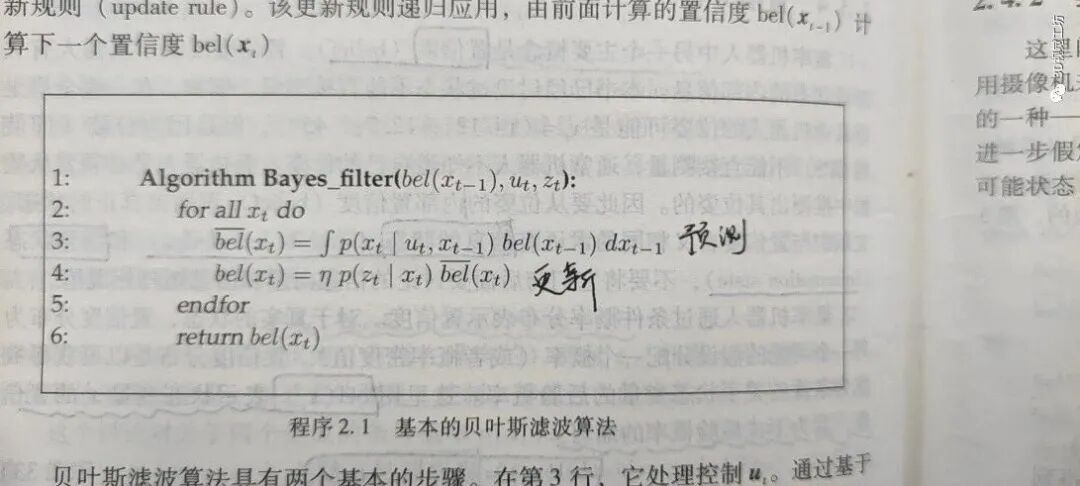 新规则（update rule）。该更新规则递归应用，由前面计算的置信度 bel(xₜ₋₁) 计
算下一个置信度 bel(xₜ)
1: Algorithm Bayes_filter(bel(xₜ₋₁), uₜ, zₜ):
2: for all xₜ do
3: b̅e̅l̅(xₜ) = ∫ p(xₜ | uₜ, xₜ₋₁) bel(xₜ₋₁) dxₜ₋₁ 预测
4: bel(xₜ) = η p(zₜ | xₜ) b̅e̅l̅(xₜ) 更新
5: endfor
6: return bel(xₜ)
程序 2.1 基本的贝叶斯滤波算法
贝叶斯滤波算法具有两个基本的步骤。在第 3 行，它处理控制 uₜ。通过基于
2.4.2
这里
用摄像机
的一种——
进一步假
可能状态